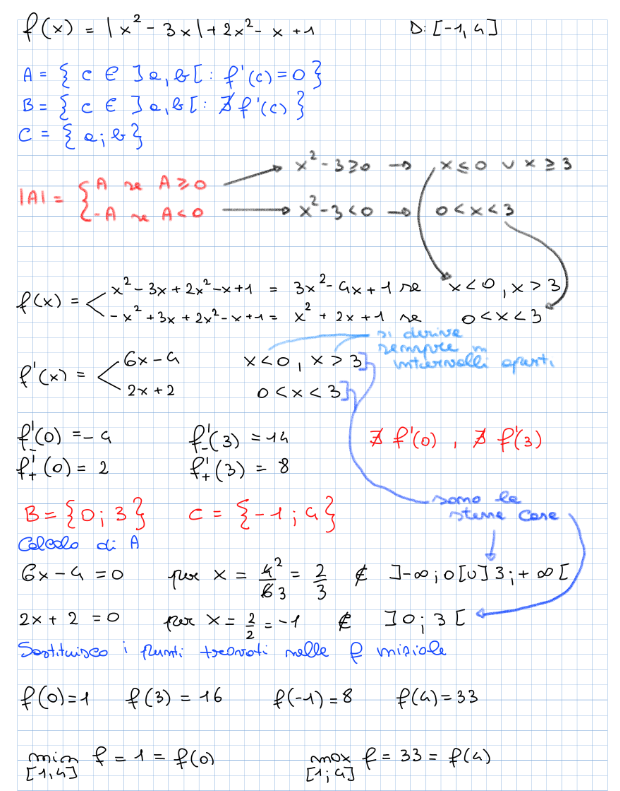 f(x) = |x² - 3x| + 2x² - x + 1 D: [-1, 4]
A = { c ∈ ]a, b[ : f'(c) = 0 }
B = { c ∈ ]a, b[ : ∄ f'(c) }
C = { a; b }
|A| = { A se A ≥ 0 → x² - 3 ≥ 0 → x ≤ 0 ∪ x ≥ 3
-A se A < 0 → x² - 3 < 0 → 0 < x < 3
f(x) = < x² - 3x + 2x² - x + 1 = 3x² - 4x + 1 se x < 0, x > 3
-x² + 3x + 2x² - x + 1 = x² + 2x + 1 se 0 < x < 3
si deriva
sempre in
intervalli aperti
f'(x) = < 6x - 4 x < 0, x > 3
2x + 2 0 < x < 3
f'₋(0) = -4 f'₋(3) = 14 ∄ f'(0), ∄ f'(3)
f'₊(0) = 2 f'₊(3) = 8
B = {0; 3} C = {-1; 4}
sono la
stessa cosa
Calcolo di A
6x - 4 = 0 per x = 4²/6₃ = 2/3 ∉ ]-∞; 0[∪]3; +∞[
2x + 2 = 0 per x = 2/2 = -1 ∉ ]0; 3[
Sostituisco i punti trovati nella f iniziale
f(0) = 1 f(3) = 16 f(-1) = 8 f(4) = 33
min f = 1 = f(0) max f = 33 = f(4)
[1,4] [1;4]